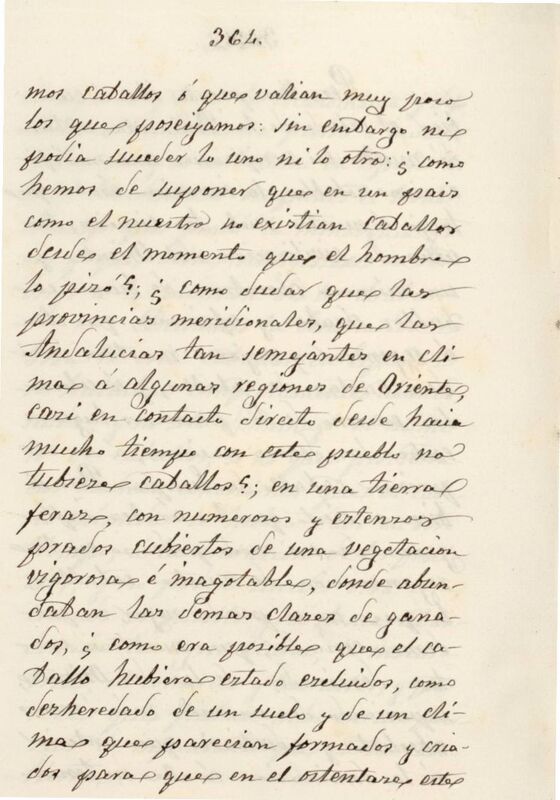 364.
mos caballos ó que valian muy poco
los que poseiyamos: sin embargo ni
podia suceder lo uno ni lo otro: ¿ como
hemos de suponer que en un pais
como el nuestro no existian caballos
desde el momento que el hombre
lo pizó?; ¿ como dudar que las
provincias meridionales, que las
Andalucias tan semejantes en cli-
ma á algunas regiones de Oriente,
cazi en contacto directo desde hacia
mucho tiempo con este pueblo no
tubieze caballos?; en una tierra
feraz, con numerosos y estenzos
prados cubiertos de una vegetacion
vigorosa é inagotable, donde abun-
daban las demas clazes de gana-
dos, ¿ como era posible que el ca-
ballo hubiera estado escluidos, como
dezheredado de un suelo y de un cli-
ma que parecian formados y cria-
dos para que en el ostentare este